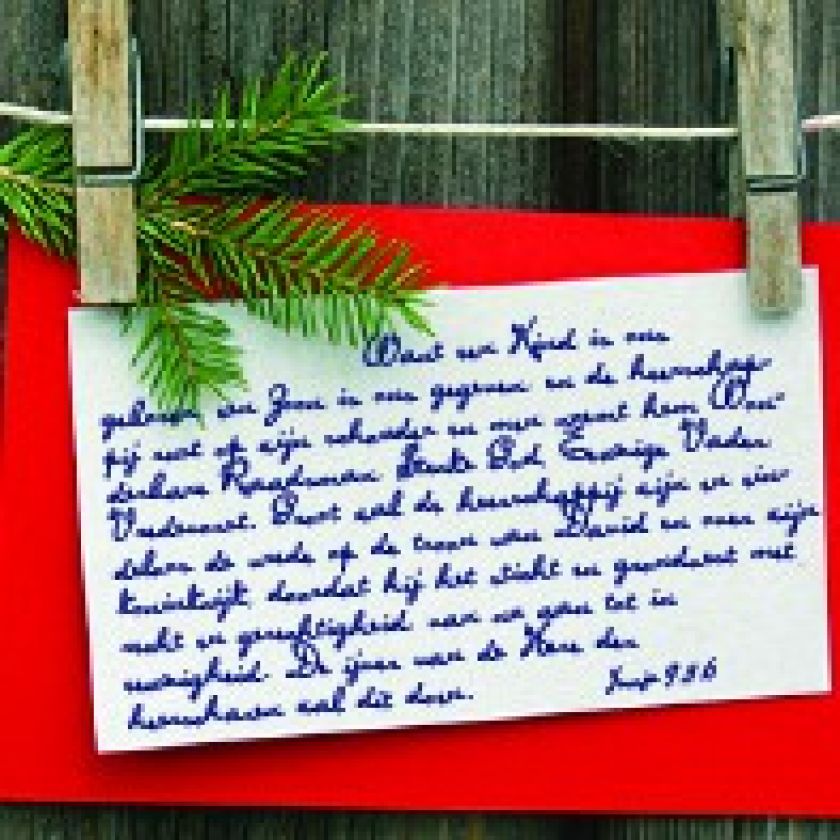 Want een Kind is ons
geboren een Zoon is ons gegeven en de heerschap-
pij rust op zijn schouder en men noemt hem Won-
derbare Raadsman Sterke God, Eeuwige Vader
Vredevorst. Groot zal de heerschappij zijn en ein-
deloos de vrede op de troon van David en over zijn
koninkrijk, doordat hij het sticht en grondvest met
recht en gerechtigheid van nu aan tot in
eeuwigheid. De ijver van de Here der
heerscharen zal dit doen.